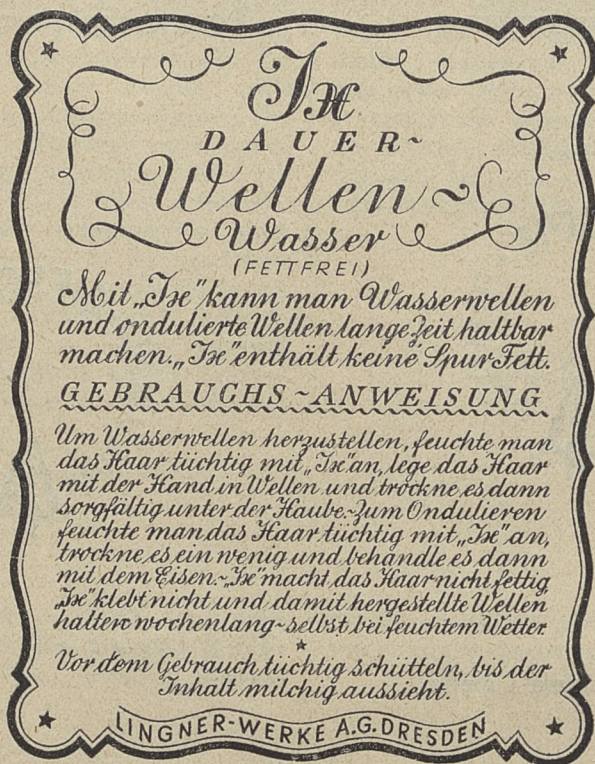 Ix
DAUER-
Wellen-
Wasser
(FETTFREI)
Mit „Ix" kann man Wasserwellen
und ondulierte Wellen lange Zeit haltbar
machen. „Ix" enthält keine Spur Fett.
GEBRAUCHS-ANWEISUNG
Um Wasserwellen herzustellen, feuchte man
das Haar tüchtig mit „Ix" an, lege das Haar
mit der Hand in Wellen und trockne es dann
sorgfältig unter der Haube.-Zum Ondulieren
feuchte man das Haar tüchtig mit „Ix" an,
trockne es ein wenig und behandle es dann
mit dem Eisen.-„Ix" macht das Haar nicht fettig
„Ix" klebt nicht und damit hergestellte Wellen
halten wochenlang-selbst bei feuchtem Wetter.
Vor dem Gebrauch tüchtig schütteln, bis der
Inhalt milchig aussieht.
LINGNER-WERKE A.G. DRESDEN